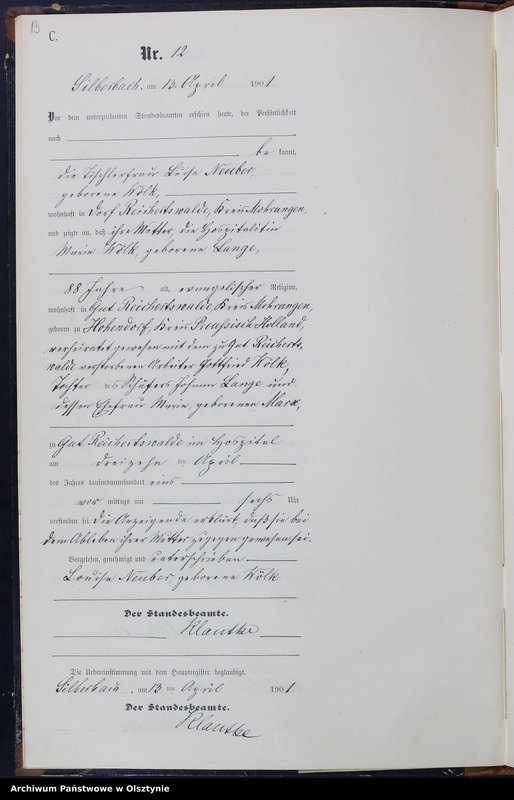 13
C.
Nr. 12
Silberbach, am 13. April 1901.
Vor dem unterzeichneten Standesbeamten erschien heute, der Persönlichkeit
nach
be kannt,
die Tischlerfrau Luise Neuber,
geborene Kölk,
wohnhaft in Dorf Reichertswalde, Kreis Mohrungen,
und zeigte an, daß ihre Mutter, die Hospitalitin
Marie Kölk, geborene Lange,
88 Jahre alt, evangelischer Religion,
wohnhaft in Gut Reichertswalde, Kreis Mohrungen,
geboren zu Hohendorf, Kreis Preußisch Holland,
verheiratet gewesen mit dem zu Gut Reicherts-
walde verstorbenen Arbeiter Gottfried Kölk,
Tochter des Schäfers Johann Lange und
dessen Ehefrau Marie, geborenen Marx,
zu Gut Reichertswalde im Hospital
am dreizehn ten April
des Jahres tausendneunhundert eins
vor mittags um sechs Uhr
verstorben sei. Die Anzeigende erklärt, daß sie bei
dem Ableben ihrer Mutter zugegen gewesen sei.
Vorgelesen, genehmigt und unterschrieben
Louise Neuber geborene Kölk
Der Standesbeamte.
Klautke
Die Uebereinstimmung mit dem Hauptregister beglaubigt.
Silberbach, am 13 ten April 1901.
Der Standesbeamte.
Klautke
Archiwum Państwowe w Olsztynie